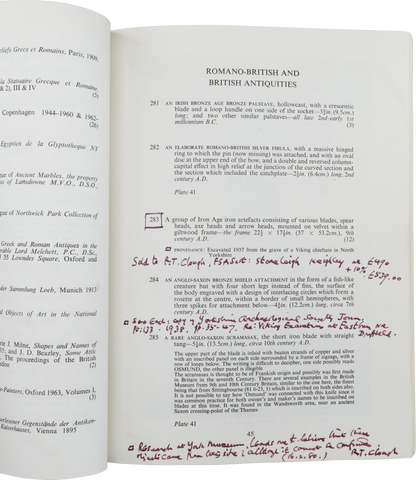 liefi Grecs et Romains, Paris, 1909,
la Statuaire Grecque et Romaine,
& 2), III & IV
(5)
Copenhagen 1944–1960 & 1962–
(26)
Egyptien de la Glyptotheque XY
of Ancient Marbles, the property
of Lansdowne M.V.O., D.S.O.,
of Northwick Park Collection of
Greek and Roman Antiquities in the
Lord Melchett, P.C., Sc.
35 Lowndes Square, Oxford and
der Sammlung Loeb, Munich 1913
and Objects of Art in the National
J. Milne, Shapes and Names of
(2) and J. D. Beazley, Some Attic
The Proceedings of the British
-Painters, Oxford 1963, Volumes I,
(3)
Gegenstände der Antiken-
Kaiserhauser, Vienna 1895
ROMANO-BRITISH AND
BRITISH ANTIQUITIES
281 AN IRISH BRONZE AGE BRONZE PALSTAVE, hollowcast, with a crescentic
blade and a loop handle on one side of the socket—3¾in. (9.5cm.)
long; and two other similar palstaves—all late 2nd-early 1st
millennium B.C. (3)
282 AN ELABORATE ROMANO-BRITISH SILVER FIBULA, with a massive hinged
ring to which the pin (now missing) was attached, and with an oval
disc at the upper end of the bow, and a double and reversed column-
capital effect in high relief at the junction of the curved section and
the section which included the catchplate—2½in. (6.4cm.) long, 2nd
century A.D.
Plate 41
283 A group of Iron Age iron artefacts consisting of various blades, spear
heads, axe heads and arrow heads, mounted on velvet within a
giltwood frame—the frame 22½ × 17½in. (57 × 53.2cm.), 9th
century A.D. (12)
PROVENANCE: Excavated 1937 from the grave of a Viking chieftain in North
Yorkshire
Sold to R.T. Clough, Stoneleigh Keighley
+ 10%
284 AN ANGLO-SAXON BRONZE SHIELD ATTACHMENT in the form of a fish-like
creature but with four short legs instead of fins, the surface of
the body engraved with a design of interlacing circles which form a
rosette at the centre, within a border of small hemispheres, with
three spikes for attachment below—4¾in. (12.2cm.) long, circa 7th
century A.D.
See Encl. copy of Yorkshire Archaeological Society Journ.
1938. pp. 35-47. Re: Viking
285 A RARE ANGLO-SAXON SCRAMASAX, the short iron blade with straight
tang—5¾in. (13.5cm.) long, circa 9th century A.D.
The upper part of the blade is inlaid with beaten strands of copper and silver
with an inscribed panel on each side surrounded by a frame of zigzag, with a
row of loops below. The writing is difficult to decipher; one side possibly reads
OSMUND, the other panel is illegible.
The scramasax is thought to be of Frankish origin and possibly was first made
in Britain in the seventh Century. There are several examples in the British
Museum from 9th and 10th Century Britain, similar to the one here, the finest
being that from Sittingbourne (81 6-23, 1) which is inscribed on both sides also.
It is not possible to say how 'Osmund' was connected with this knife since it
was common practice for both owner's and maker's names to be inscribed on
blades at this time. It was found in the Wandsworth area, near an ancient
Saxon crossing-point of the Thames
Plate 41
45
Research at York Museum, leads me to believe that these
objects came from long site; although it cannot be confirmed
R.T. Clough